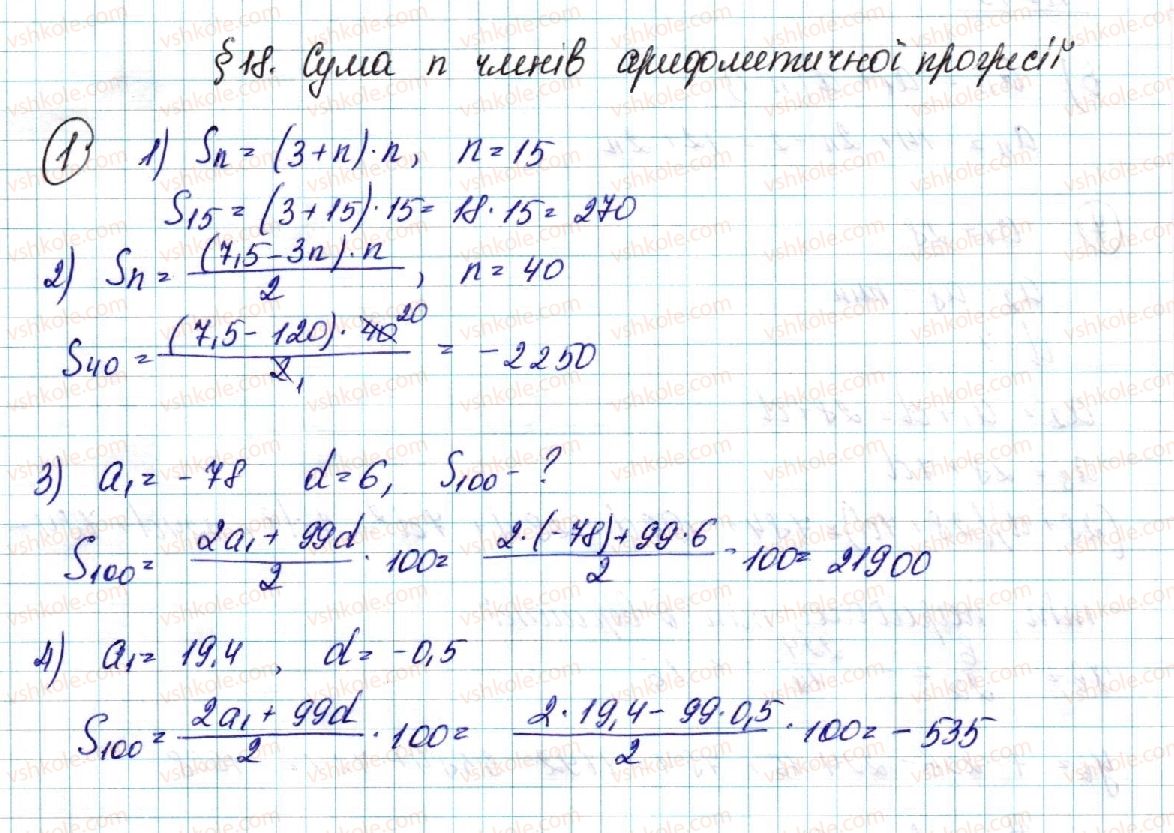 § 18. Сума n членів арифометичної прогресії
1) 1) Sn = (3+n)·n, n = 15
S15 = (3+15)·15 = 18·15 = 270
2) Sn = (7,5-3n)·n / 2, n = 40
S40 = (7,5-120)·40 20 / 2 1 = -2250
3) a1 = -78 d = 6, S100 - ?
S100 = 2a1 + 99d / 2 · 100 = 2·(-78)+99·6 / 2 · 100 = 21900
4) a1 = 19,4, d = -0,5
S100 = 2a1 + 99d / 2 · 100 = 2·19,4 - 99·0,5 / 2 · 100 = -535